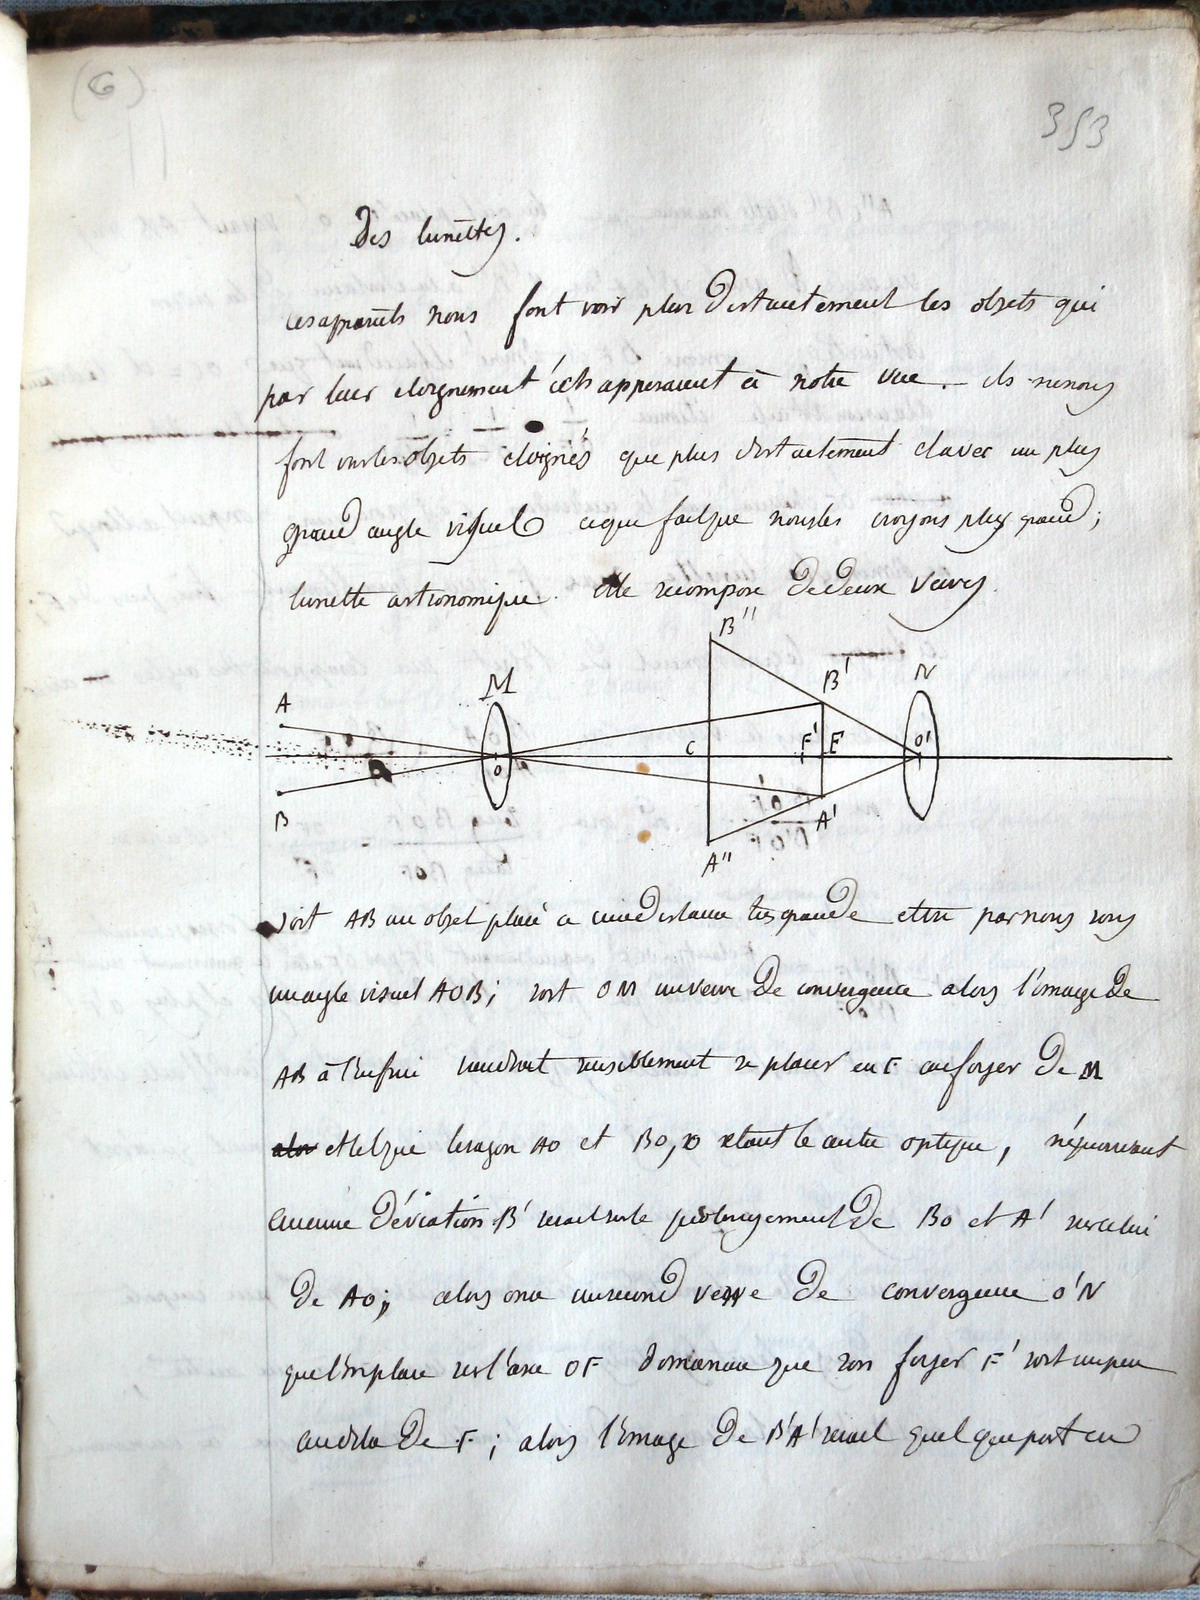 (6)
353
Des lunettes.
Ces appareils nous font voir plus distinctement les objets qui
par leur eloignement échapperaient à notre vue. – ils ne nous
font voir les objets éloignés que plus distinctement et avec un plus
grand angle visuel ce que fait que nous les croyons plus grand;
lunette astronomique. elle se compose de deux verres.
B''
A M B' N
C F' F O'
O
B A'
A''
soit AB un objet placé a une distance très grande et vu par nous sous
un angle visuel AOB; soit OM un verre de convergence alors l'image de
AB à l'infini viendrait sensiblement se placer en F au foyer de M
et tel que le rayon AO et BO, O etant le centre optique, n'éprouvant
aucune déviation B' serait sur le prolongement de BO et A' sur celui
de AO; alors on a un second verre de convergence O'N
que l'on place sur l'axe OF de maniere que son foyer F' soit un peu
au dela de F; alors l'image de B'A' serait quelque part en